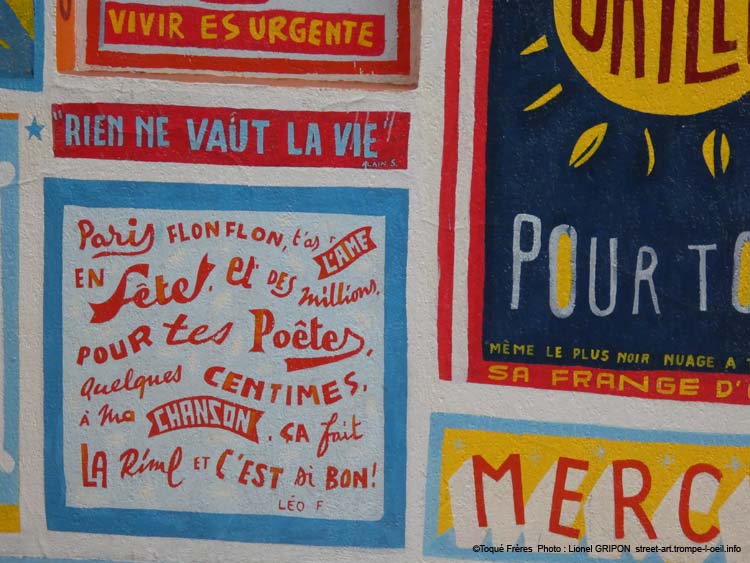 VIVIR ES URGENTE
"RIEN NE VAUT LA VIE"
ALAIN S.
Paris FLONFLON, t'as L'AME
EN fête, et DES millions,
POUR tes Poètes,
quelques CENTIMES,
à ma CHANSON, ÇA fait
LA Rime ET C'EST si BON!
LÉO F
POUR TO
"MÊME LE PLUS NOIR NUAGE A
SA FRANGE D'
MERC
©Toqué Frères Photo : Lionel GRIPON street-art.trompe-l-oeil.info